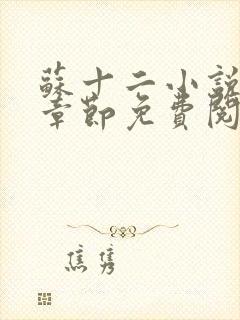 蘇十二小說
章節免費閱
焦雋